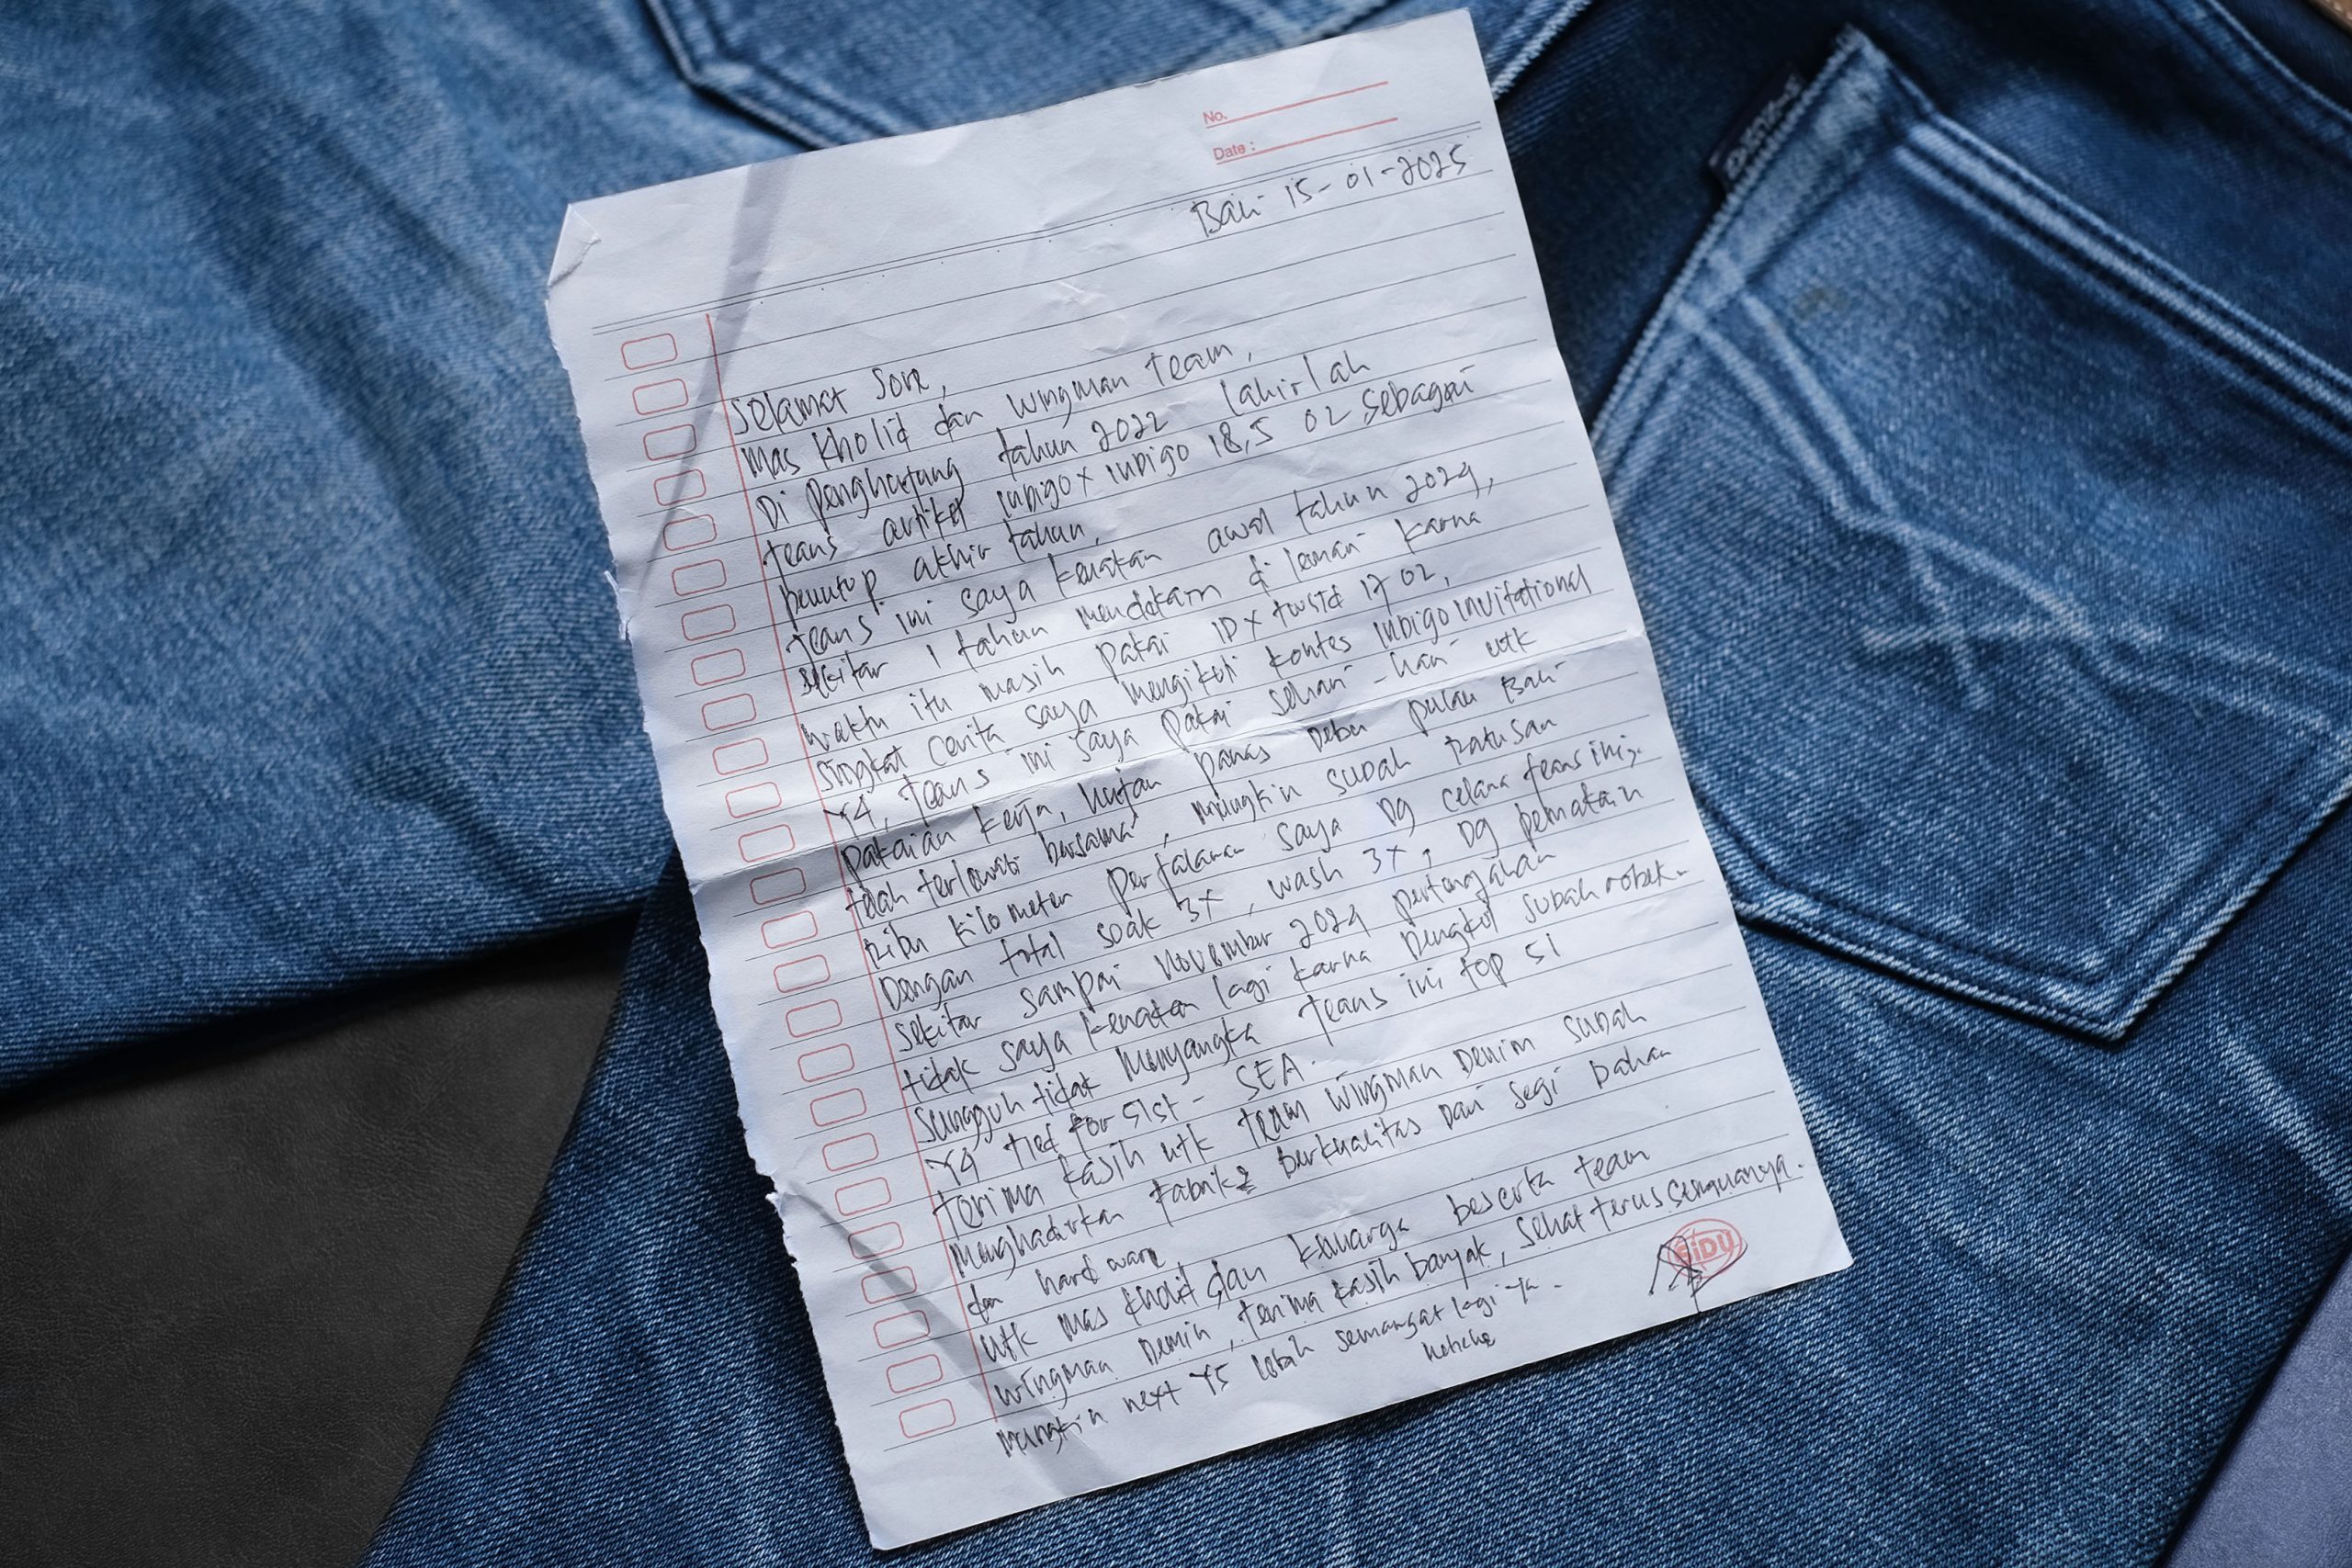 No.
Date :
Bali 15-01-2025
Selamat Sore,
Mas Kholid dan Wingman Team,
Di penghujung tahun 2022 lahirlah
jeans artikel indigo x indigo 18,5 OZ sebagai
penutup akhir tahun,
jeans ini saya kenakan awal tahun 2024,
sekitar 1 tahun mendekam di lemari karna
waktu itu masih pakai ID x twstd 17 OZ,
singkat cerita saya mengikuti kontes indigo invitational
Y4, jeans ini saya pakai sehari-hari utk
pakaian kerja, hujan panas debu pulau Bali
telah terlewati bersama, mungkin sudah ratusan
ribu kilometer perjalanan saya dg celana jeans ini,
Dengan total soak 3x, wash 3x, dg pemakain
sekitar sampai November 2024 pertengahan
tidak saya kenakan lagi karna dengkul sudah robek.
sungguh tidak menyangka jeans ini top 51
Y4 tied for 51st - SEA.
terima kasih utk team wingman denim sudah
menghadirkan fabrik2 berkualitas dari segi bahan
dan hardware
utk mas kholid dan keluarga beserta team
wingman demin, terima kasih banyak, sehat terus semuanya.
mungkin next Y5 lebih semangat lagi ya.
hehehe
BiDU